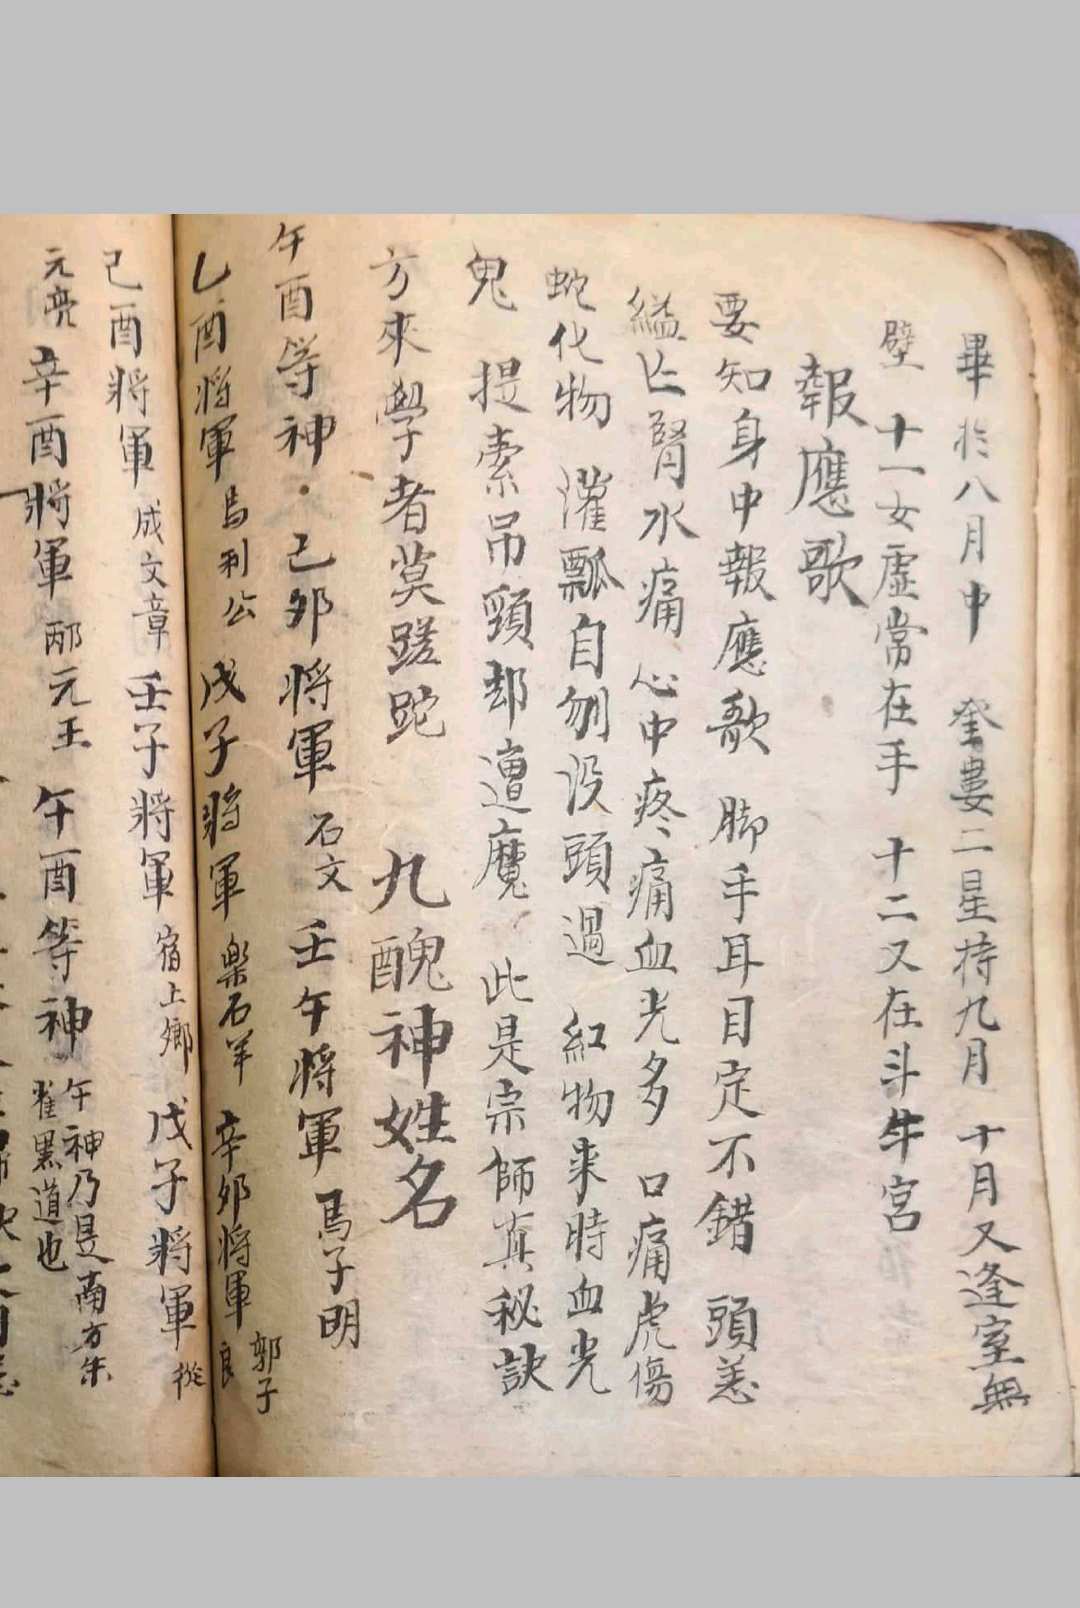 畢於八月中　奎婁二星持九月　十月又逢室無
壁　十一女虛常在手　十二又在斗牛宮
報應歌
要知身中報應歌　脚手耳目定不錯　頭恙
縊亡腎水痛　心中疼痛血光多　口痛虎傷
蛇化物　灌瓢自刎没頭過　紅物来時血光
鬼　提索吊頸却遭魔　此是宗師真秘訣
方來學者莫蹉跎　九醜神姓名
午酉等神・己卯将軍　石文　壬午將軍　馬子明
乙酉將軍　馬利公　戊子將軍　樂石羊　辛卯將軍　郭子
良
己酉將軍　成文章　壬子將軍　宿上鄉　戊子將軍　從
元亮　辛酉將軍　邴元王　午酉等神　午神乃是南方朱
雀黑道也